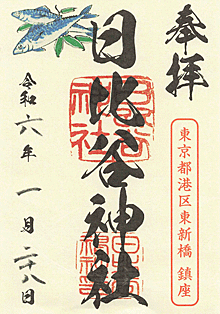 奉拝
東京都港区東新橋 鎮座
日比谷神社
令和六年 一月 二十八日